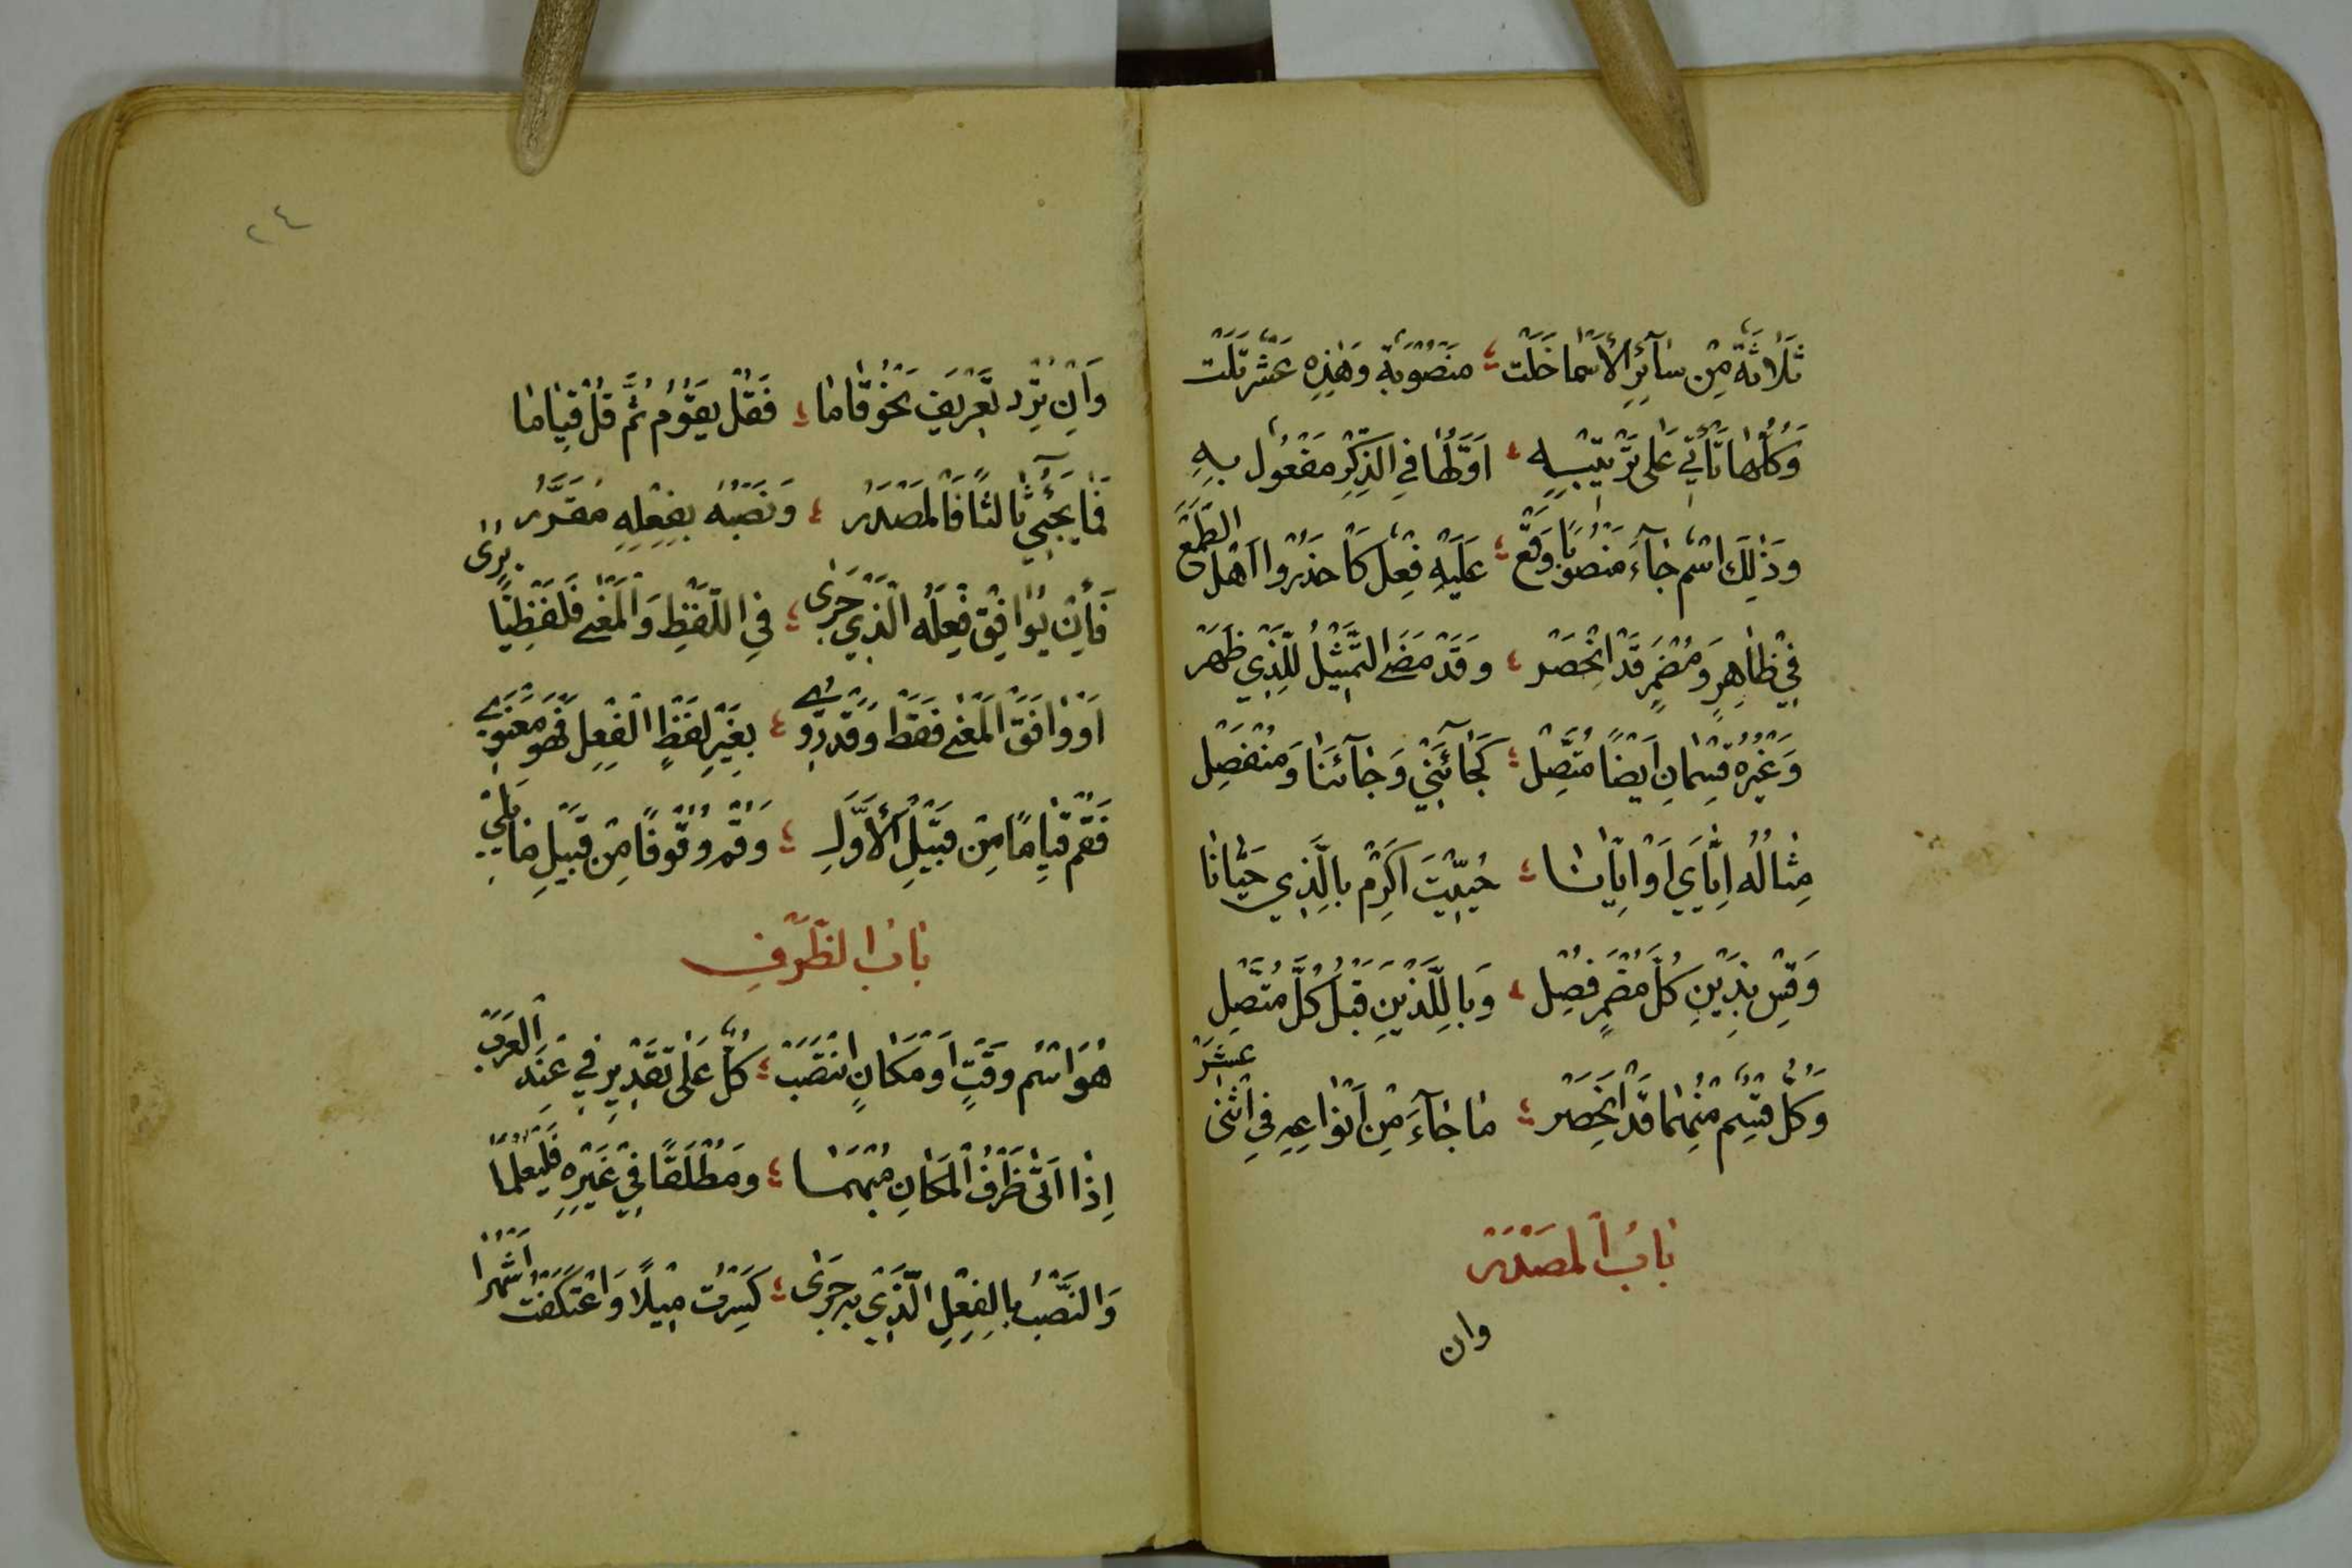 ثَلَاثَةٌ مِنْ سَآئِرِ الْأَسْمَا خَلَتْ ؛ مَنْصُوبَةٌ وَهٰذِهِ عَشْرٌ تَلَتْ
وَكُلُّهَا تَأْتِي عَلَى تَرْتِيْبِهِ ؛ اَوَّلُهَا فِي الذِّكْرِ مَفْعُولٌ بِهِ
وَذٰلِكَ اسْمٌ جَآءَ مَنْصُوبًا وَقَعْ ؛ عَلَيْهِ فِعْلٌ كَاحْذَرُوا اَهْلَ الطَّمَعْ
فِيْ ظَاهِرٍ وَمُضْمَرٍ قَدِ انْحَصَرْ ؛ وَقَدْ مَضَى التَّمْثِيْلُ لِلَّذِي ظَهَرْ
وَغَيْرُهُ قِسْمَانِ اَيْضًا مُتَّصِلْ ؛ كَجَآئَنِيْ وَجَآئَنَا وَمُنْفَصِلْ
مِثَالُهُ اِيَّايَ اَوْ اِيَّانَا ؛ حُيِّيْتَ اَكْرِمْ بِالَّذِي حَيَّانَا
وَقِسْ بِذَيْنِ كُلَّ مُضْمَرٍ فُصِلْ ؛ وَبِاللَّذَيْنِ قَبْلُ كُلَّ مُتَّصِلْ
وَكُلُّ قِسْمٍ مِنْهُمَا قَدِ انْحَصَرْ ؛ مَا جَآءَ مِنْ اَنْوَاعِهِ فِي اثْنَى عَشَرْ
بَابُ الْمَصْدَرْ
وان
٢٤
وَاِنْ تُرِدْ تَصْرِيْفَ نَحْوُ قَامَا ؛ فَقُلْ يَقُوْمُ ثُمَّ قُلْ قِيَامَا
فَمَا يَجِيْ ثَالِثًا فَالْمَصْدَرُ ؛ وَنَصْبُهُ بِفِعْلِهِ مُقَرَّرُ
فَاِنْ يُوَافِقْ فِعْلَهُ الَّذِيْ جَرٰى ؛ فِي اللَّفْظِ وَالْمَعْنٰى فَلَفْظِيًّا يُرٰى
اَوْ وَافَقَ الْمَعْنٰى فَقَطْ وَقَدْ رُوِيْ ؛ بِغَيْرِ لَفْظِ الْفِعْلِ فَهْوَ مَعْنَوِيْ
فَقُمْ قِيَامًا مِنْ قَبِيْلِ الْأَوَّلِ ؛ وَقُمْ وُقُوْفًا مِنْ قَبِيْلِ مَا يَلِيْ
بَابُ الظَّرْفِ
هُوَ اسْمُ وَقْتٍ اَوْ مَكَانٍ انْتَصَبْ ؛ كُلٌّ عَلَى تَقْدِيْرِ فِيْ عِنْدَ الْعَرَبْ
اِذَا اَتٰى ظَرْفُ الْمَكَانِ مُبْهَمَا ؛ وَمُطْلَقًا فِيْ غَيْرِهِ فَلْيُعْلَمَا
وَالنَّصْبُ بِالْفِعْلِ الَّذِيْ بِهِ جَرٰى ؛ كَسِرْتُ مِيْلًا وَاعْتَكَفْتُ اَشْهُرَا